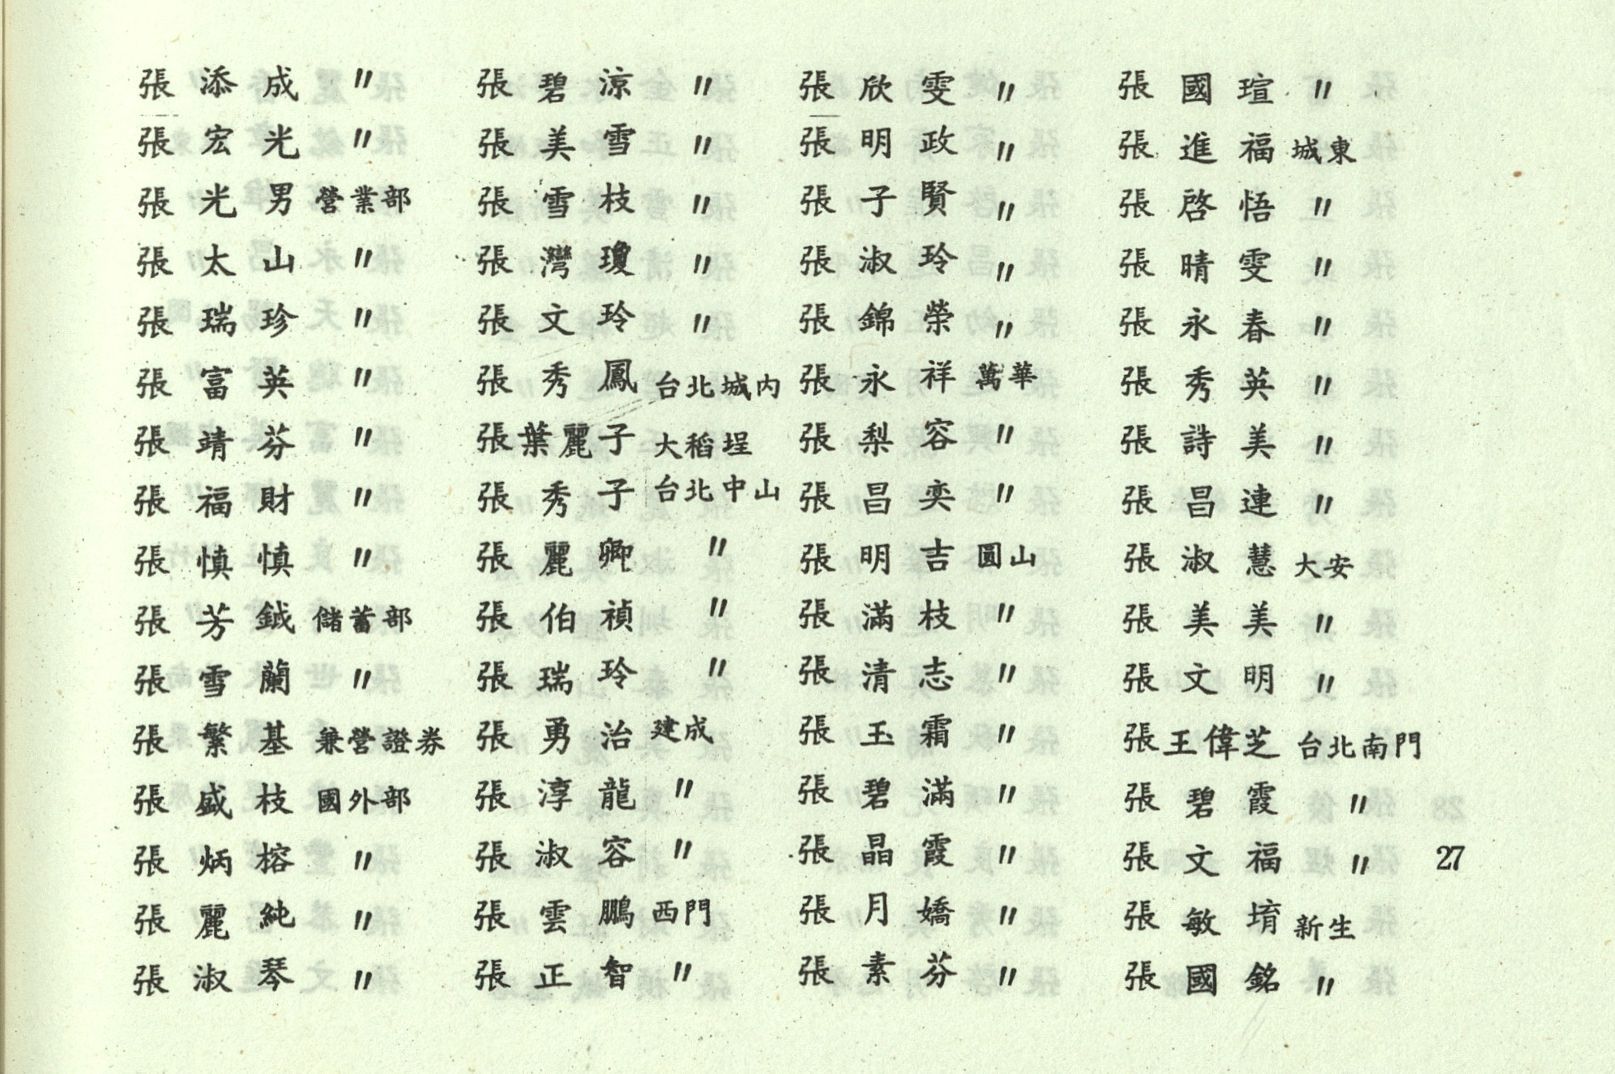 張添成 〃
張宏光 〃
張光男 營業部
張太山 〃
張瑞珍 〃
張富英 〃
張靖芬 〃
張福財 〃
張慎慎 〃
張芳鉞 儲蓄部
張雪蘭 〃
張繁基 兼營證券
張盛枝 國外部
張炳榕 〃
張麗純 〃
張淑琴 〃
張碧涼 〃
張美雪 〃
張雪枝 〃
張灣瓊 〃
張文玲 〃
張秀鳳 台北城內
張葉麗子 大稻埕
張秀子 台北中山
張麗卿 〃
張伯禎 〃
張瑞玲 〃
張勇治 建成
張淳龍 〃
張淑容 〃
張雲鵬 西門
張正智 〃
張欣雯 〃
張明政 〃
張子賢 〃
張淑玲 〃
張錦榮 〃
張永祥 萬華
張梨容 〃
張昌奕 〃
張明吉 圓山
張滿枝 〃
張清志 〃
張玉霜 〃
張碧滿 〃
張晶霞 〃
張月嬌 〃
張素芬 〃
張國瑄 〃
張進福 城東
張啓悟 〃
張晴雯 〃
張永春 〃
張秀英 〃
張詩美 〃
張昌連 〃
張淑慧 大安
張美美 〃
張文明 〃
張王偉芝 台北南門
張碧霞 〃
張文福 〃
張敏堉 新生
張國銘 〃
27